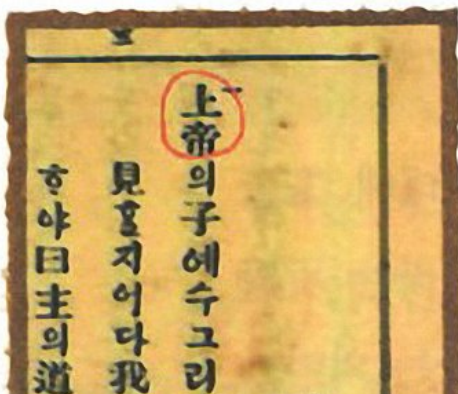 上帝의子에수그리
見ᄒᆞᆯ지어다我
ᄒᆞ야曰主의道